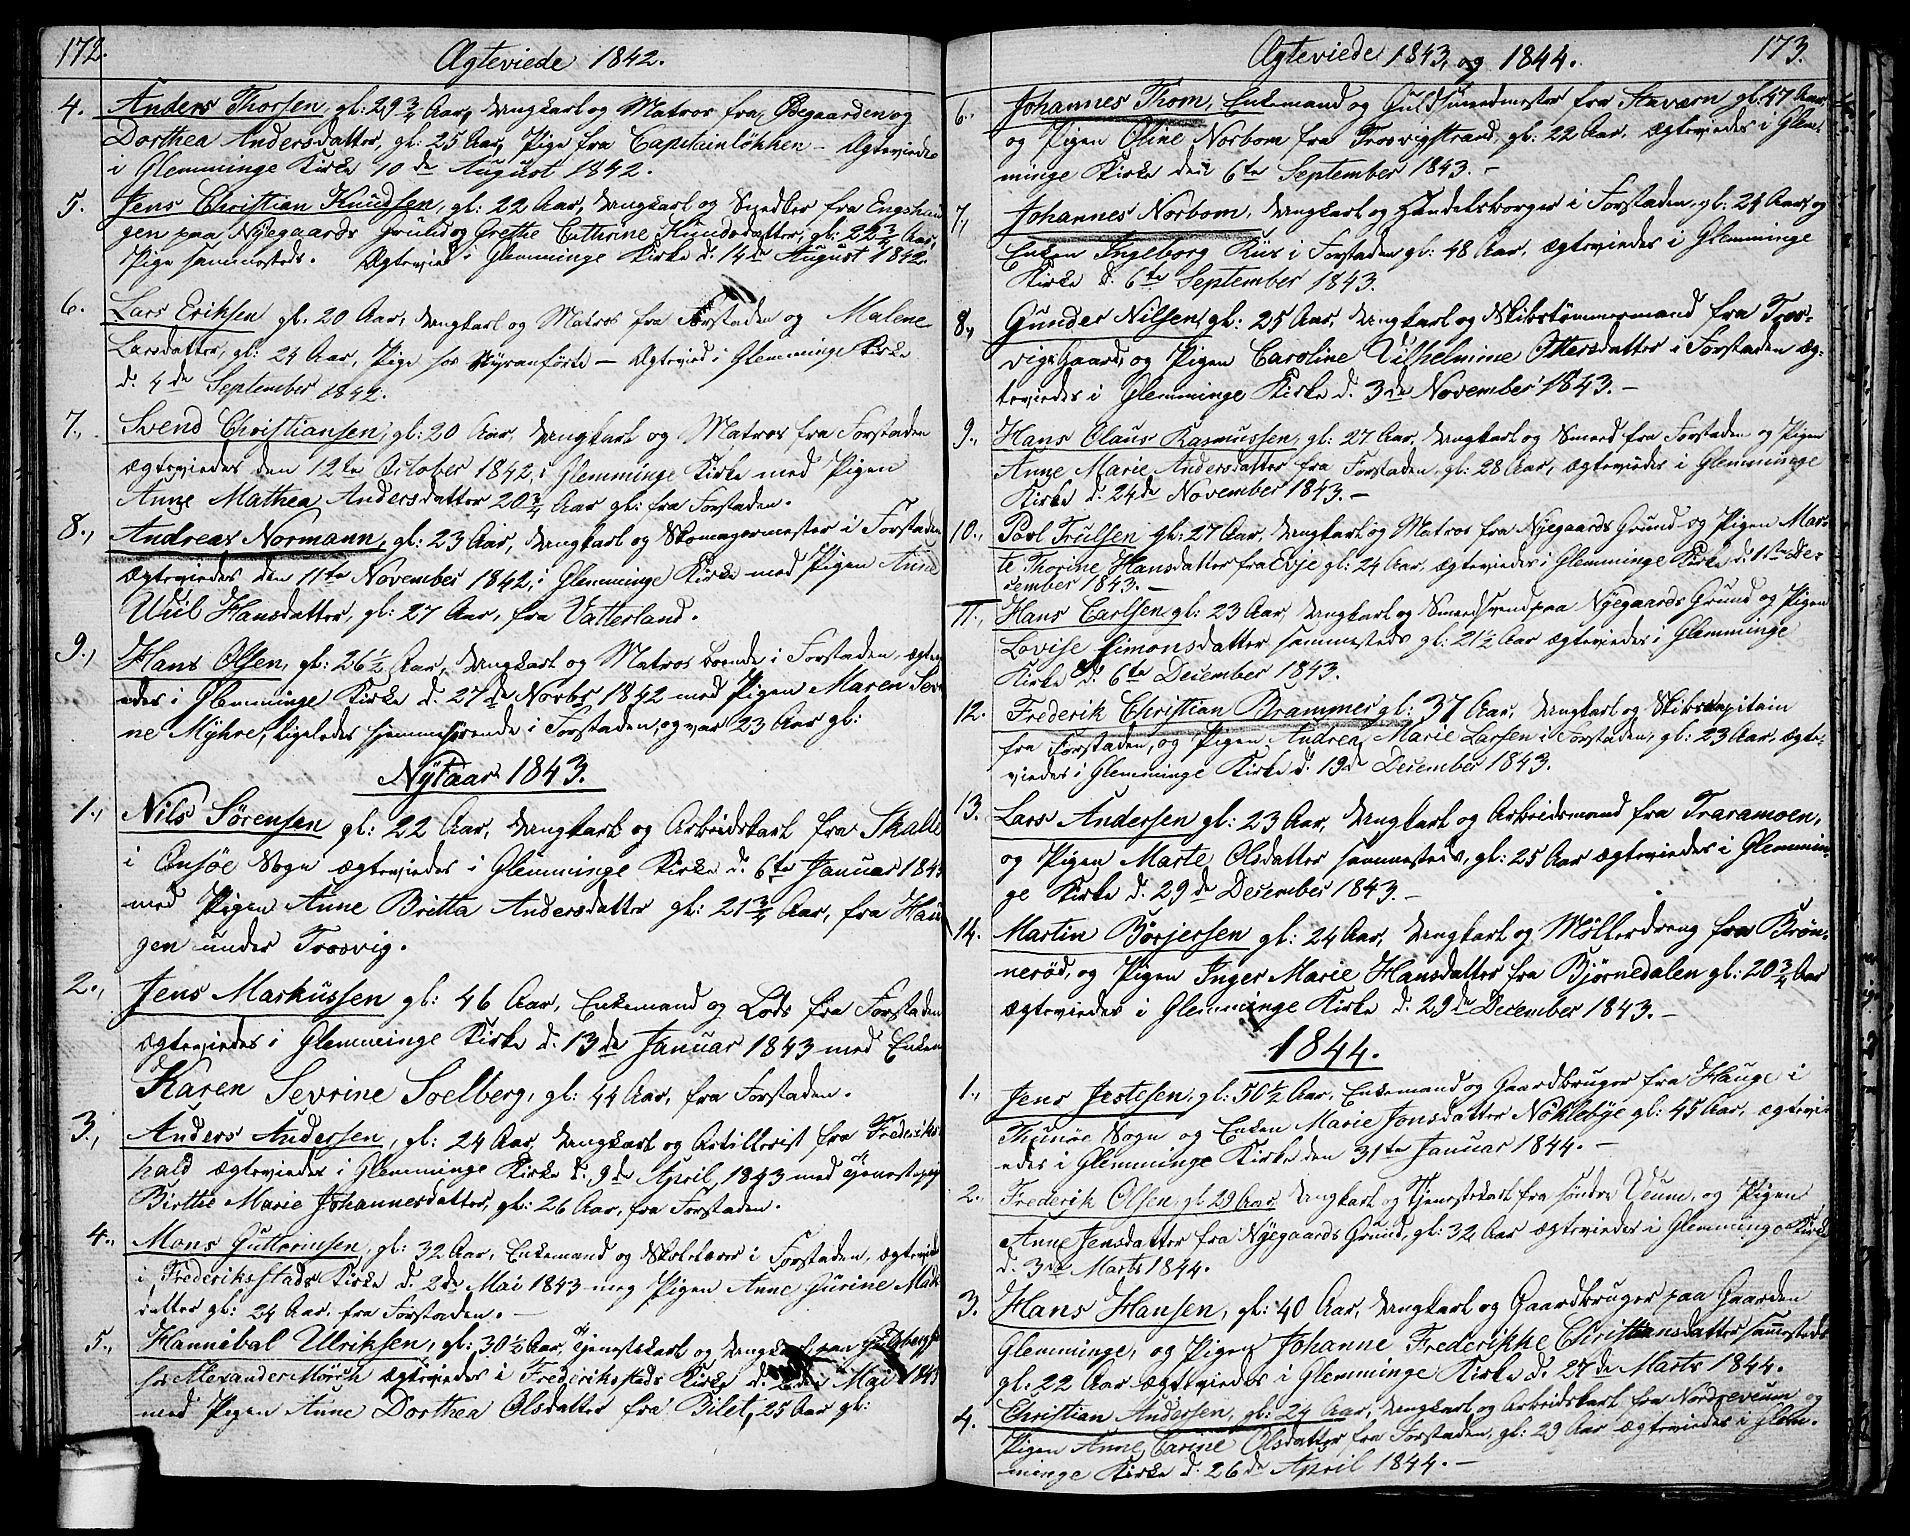 172.
Ægteviede 1842.
4. Anders Thorsen, gl: 29 3/4 Aar, Ungkarl og Matros fra Øegaarden og
Dorthea Andersdatter, gl: 25 Aar, Pige fra Capitainløkken – Ægteviede
i Glemminge Kirke 10de August 1842.
5. Jens Christian Knudsen, gl: 22 Aar, Ungkarl og Snedker fra Engshau-
gen paa Nyegaards Grund og Grethe Cathrine Knudsdatter, gl: 22 3/4 Aar,
Pige sammesteds. Ægteviet i Glemminge Kirke d. 14de August 1842.
6. Lars Eriksen gl. 20 Aar, Ungkarl og Matros fra Forstaden og Malene
Larsdatter, gl: 24 Aar, Pige – Ægteviet i Glemminge Kirke
d. 4de September 1842.
7., Svend Christiansen, gl: 20 Aar, Ungkarl og Matros fra Forstaden
ægteviedes den 12te October 1842, i Glemminge Kirke med Pigen
Anne Mathea Andersdatter 20 3/4 Aar gl: fra Forstaden.
8., Andreas Normann, gl: 23 Aar, Ungkarl og Skomagermester i Forstaden
ægteviedes den 11te November 1842, i Glemminge Kirke med Pigen Anne
Hansdatter, gl: 27 Aar, fra Vatterland.
9., Hans Olsen, gl: 26 1/2 Aar, Ungkarl og Matros boende i Forstaden, ægtevi-
edes i Glemminge Kirke d. 27de Novbr 1842 med Pigen Maren Seve-
ne Myhre, ligeledes hjemmehørende i Forstaden, og var 23 Aar gl:
Nytaar 1843.
1., Nils Sørensen gl: 22 Aar, Ungkarl og Arbeidskarl fra Skalle
i Onsøe Sogn ægteviedes i Glemminge Kirke d. 6te Januar 1843
med Pigen Anne Britta Andersdatter gl: 21 3/4 Aar, fra Hau-
gen under Trosvig.
2., Jens Markussen gl: 46 Aar, Enkemand og Lods fra Forstaden
ægteviedes i Glemminge Kirke d. 13de Januar 1843 med Enken
Karen Sevrine Soelberg, gl: 44 Aar, fra Forstaden.
3., Anders Andersen, gl: 24 Aar, Ungkarl og Artillerist fra Frederiks-
hald ægteviedes i Glemminge Kirke d. 9de April 1843 med Tjenestepige
Birthe Marie Johannesdatter, gl: 26 Aar, fra Forstaden.
4., Mons Gutterinsen, gl: 32 Aar, Enkemand og Skolelærer i Forstaden, ægteviedes
i Frederiksstads Kirke d. 2de Mai 1843 med Pigen Anne Gurine Mads-
datter gl: 24 Aar. fra Forstaden. –
5., Hannibal Ulriksen, gl: 30 1/2 Aar, Tjenestekarl og Ungkarl, paa
hos Alexander Mørch ægteviedes i Frederikstads Kirke d. 2den Mai 1843
med Pigen Anne Dorthea Olsdatter fra Bilet, 25 Aar gl:
Ægteviede 1843, og 1844.
173.
6., Johannes Thom, Enkemand og Guldsmedmester fra Stavern gl: 47 Aar,
og Pigen Oline Norbom fra Trosvigstrand, gl: 22 Aar. ægteviedes i Glem-
minge Kirke den 6te September 1843. –
7., Johannes Norbom, Ungkarl og Handelsborger i Forstaden, gl: 24 Aar og
Enken Ingeborg Riis i Forstaden gl: 48 Aar, ægteviedes i Glemminge
Kirke d. 6te September 1843.
8., Gunder Nilsen, gl: 25 Aar, Ungkarl og Skibstømmermand fra Tros-
vigs Gaard, og Pigen Caroline Vilhelmine Ottersdatter i Forstaden æg-
teviedes i Glemminge Kirke d. 3de November 1843. –
9., Hans Olaus Rasmussen, gl: 27 Aar, Ungkarl og Smed fra Forstaden og Pigen
Anne Marie Andersdatter fra Forstaden, gl: 28 Aar, ægteviedes i Glemminge
Kirke d. 24de November 1843. –
10., Povl Trulsen gl: 27 Aar, Ungkarl og Matros fra Nyegaards Grund og Pigen Mar-
te Thorine Hansdatter fra Evje gl: 24 Aar, ægteviedes i Glemminge Kirke d. 1ste De-
cember 1843. –
11., Hans Carlsen gl: 23 Aar, Ungkarl og Smedsvend paa Nyegaards Grund og Pigen
Lovise Simonsdatter sammesteds gl: 21 1/2 Aar ægteviedes i Glemminge
Kirke d. 6te December 1843.
12. Frederik Christian Brammer gl: 37 Aar, Ungkarl og Skibscapitain
fra Forstaden, og Pigen Andrea Marie Larsen i Forstaden, gl: 23 Aar, ægte-
viedes i Glemminge Kirke d. 19de December 1843.
13. Lars Andersen gl: 23 Aar, Ungkarl og Arbeidsmand fra Traramoen,
og Pigen Marte Olsdatter sammesteds, gl: 25 Aar ægteviedes i Glemmin-
ge Kirke d. 29de December 1843. –
14. Martin Børjersen gl: 24 Aar, Ungkarl og Møllerdreng fra Brøn-
nerød, og Pigen Inger Marie Hansdatter fra Bjørnedalen gl: 20 3/4 Aar
ægteviedes i Glemminge Kirke d. 29de December 1843. –
1844.
1., Jens Jestesen, gl: 50 1/2 Aar, Enkemand og Gaardbruger fra Hauge i
Thunøe Sogn og Enken Marie Jonsdatter Nøklebye gl: 45 Aar, ægtevi-
edes i Glemminge Kirke den 31te Januar 1844. –
2., Frederik Olsen, gl: 29 Aar, Ungkarl og Tjenestekarl fra søndre Veum, og Pigen
Anne Jensdatter fra Nyegaards Grund, gl: 32 Aar ægteviedes i Glemminge Kirke
d. 3de Marts 1844.
3. Hans Hansen, gl: 40 Aar, Ungkarl og Gaardbruger paa Gaarden
Glemminge, og Pigen Johanne Frederikke Christiansdatter sammesteds
gl: 22 Aar ægteviedes i Glemminge Kirke d. 27de Marts 1844.
4. Christian Andersen, gl: 24 Aar, Ungkarl og Arbeidskarl fra Nordreveum og
Pigen Anne Carine Olsdatter fra Forstaden, gl: 29 Aar ægteviedes i Glem-
minge Kirke d. 26de April 1844. –